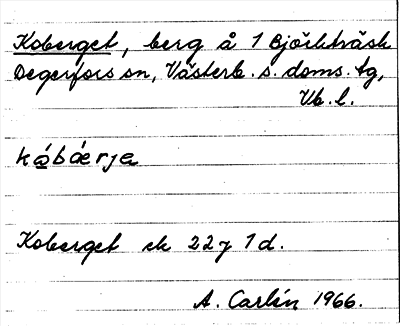 Koberget, berg å 1 Björkträsk
Degerfors sn, Västerb. s. doms. tg,
Vb. l.
kåbáerja
Koberget ek 22J 1d.
A. Carlín 1966.